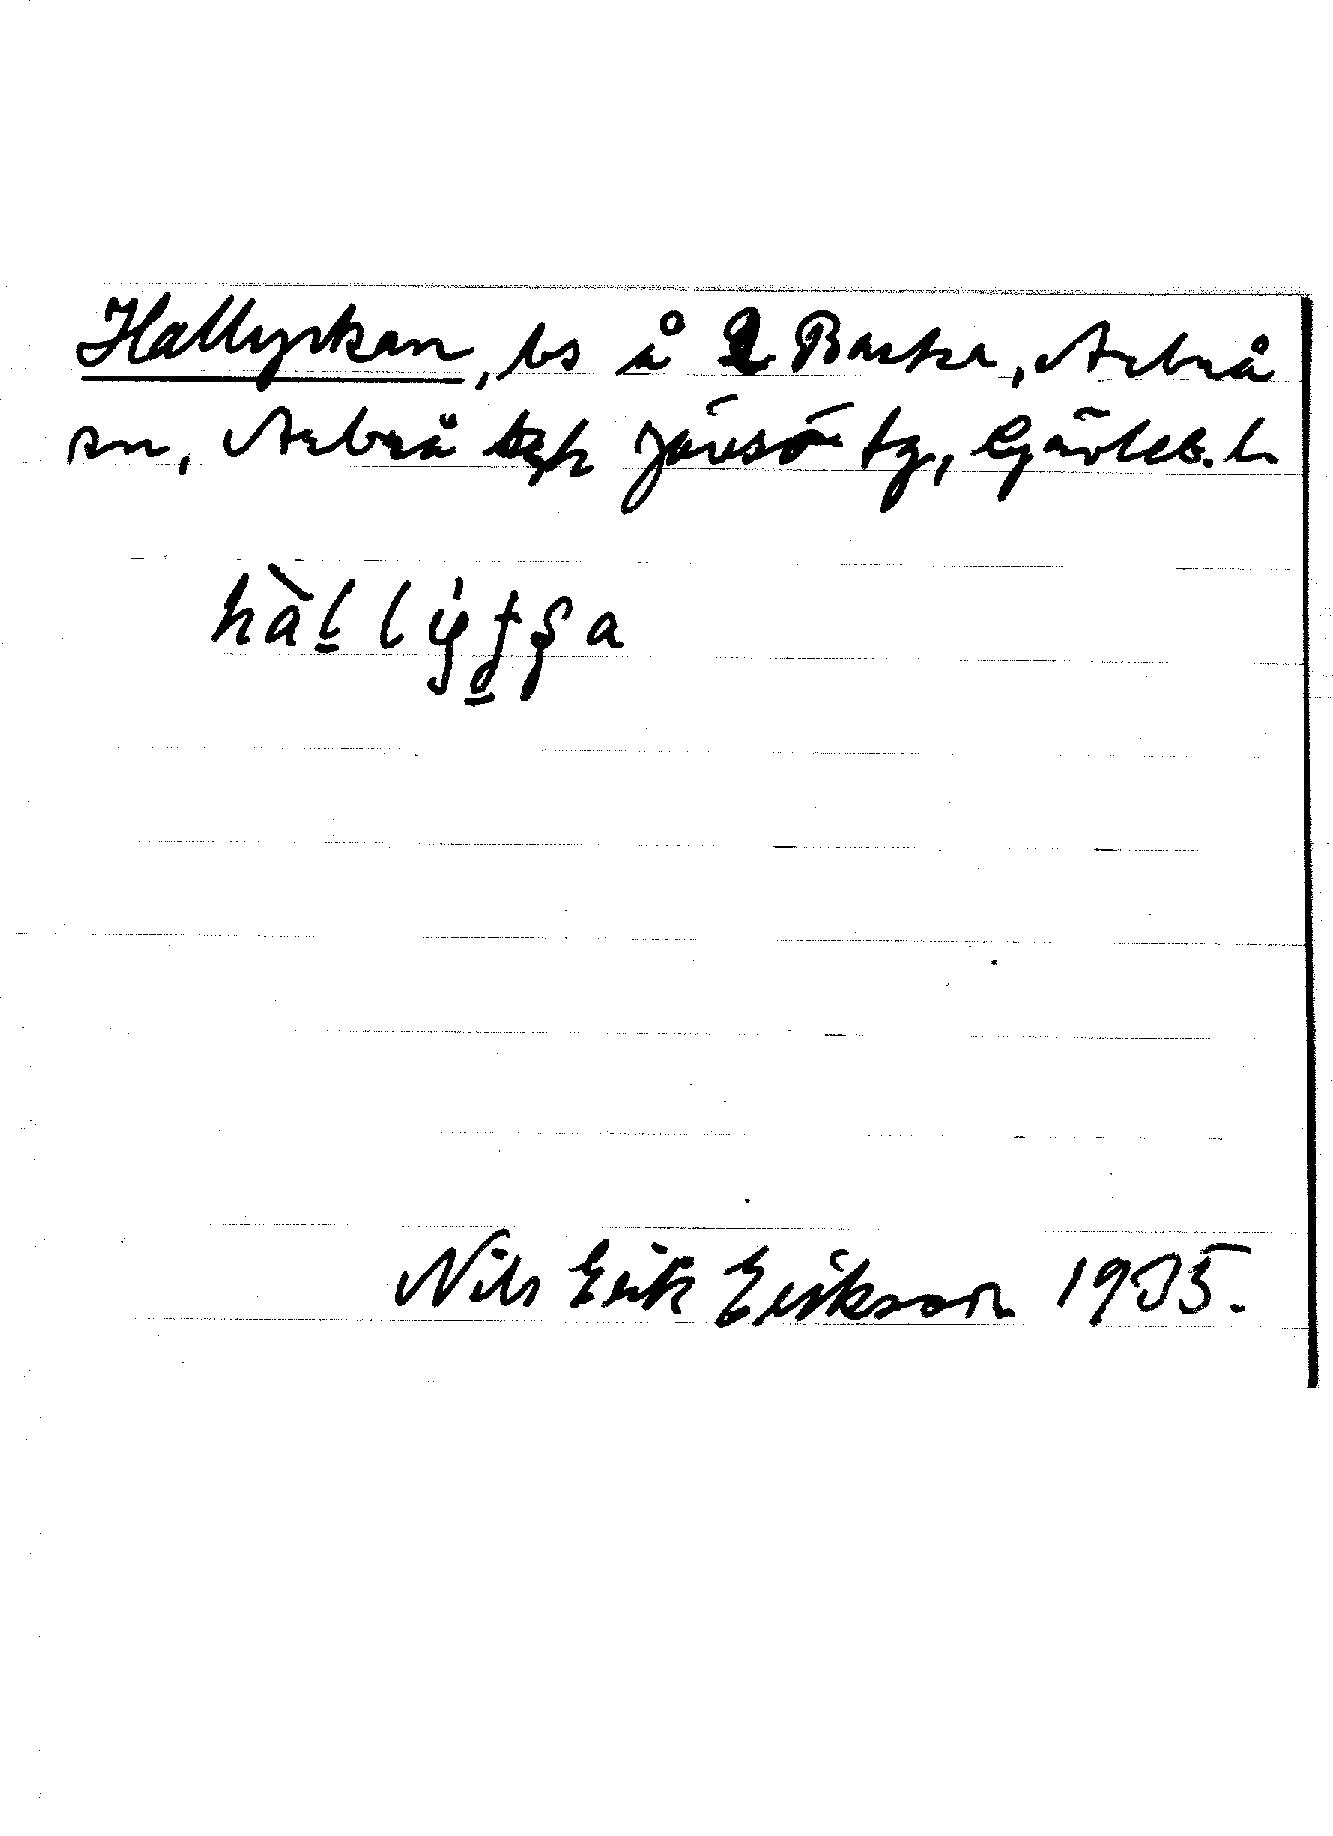 Hallyrkan, bs å 2 Barka, Arbrå
sn, Arbrå och Järvsö tg, Gävleb. l.
hàllyrga
Nils Erik Erikson 1935.